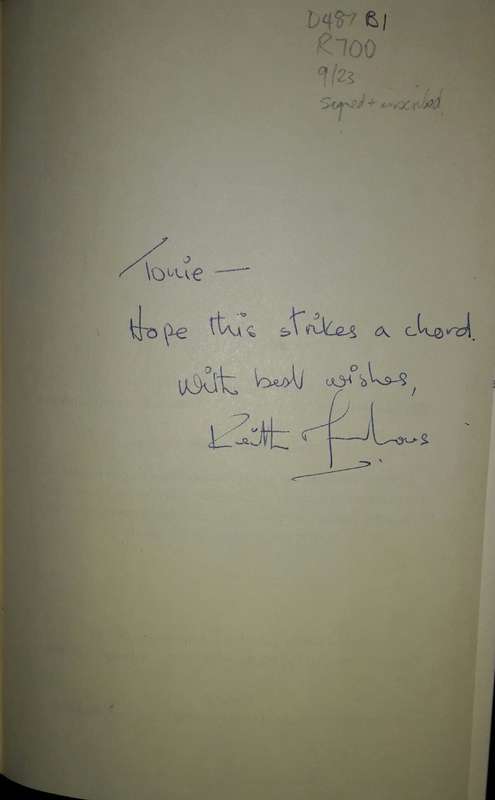 D487 B1
R700
9/23
signed + inscribed
Tonie —
Hope this strikes a chord.
With best wishes,
Keith